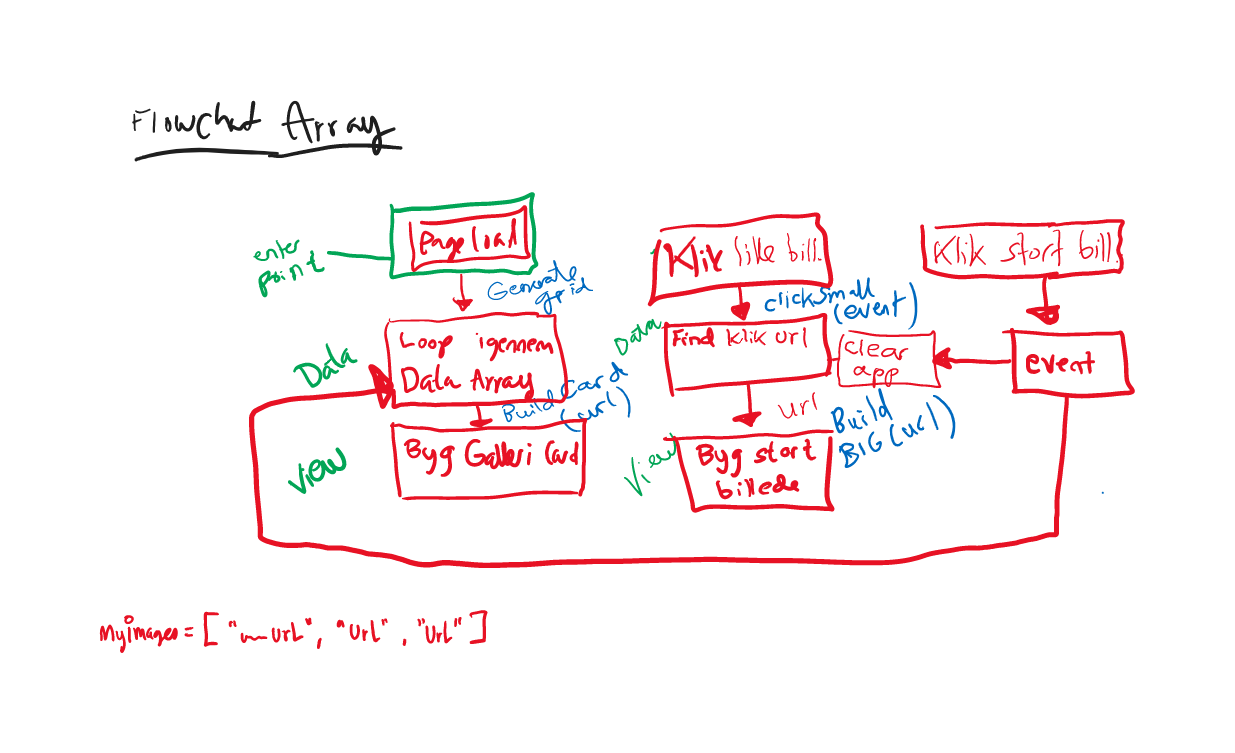 Flowchat Array
enter
point
Page load
Generate
grid
Data
Loop igennem
Data Array
Build Card
(url)
View
Byg Galleri Card
Klik lille bill.
clickSmall
(event)
Data
Find klik url
url
Build
BIG (url)
View
Byg start
billede
Klik start bill.
event
clear
app
MyImages = [ "~url", "url", "url" ]